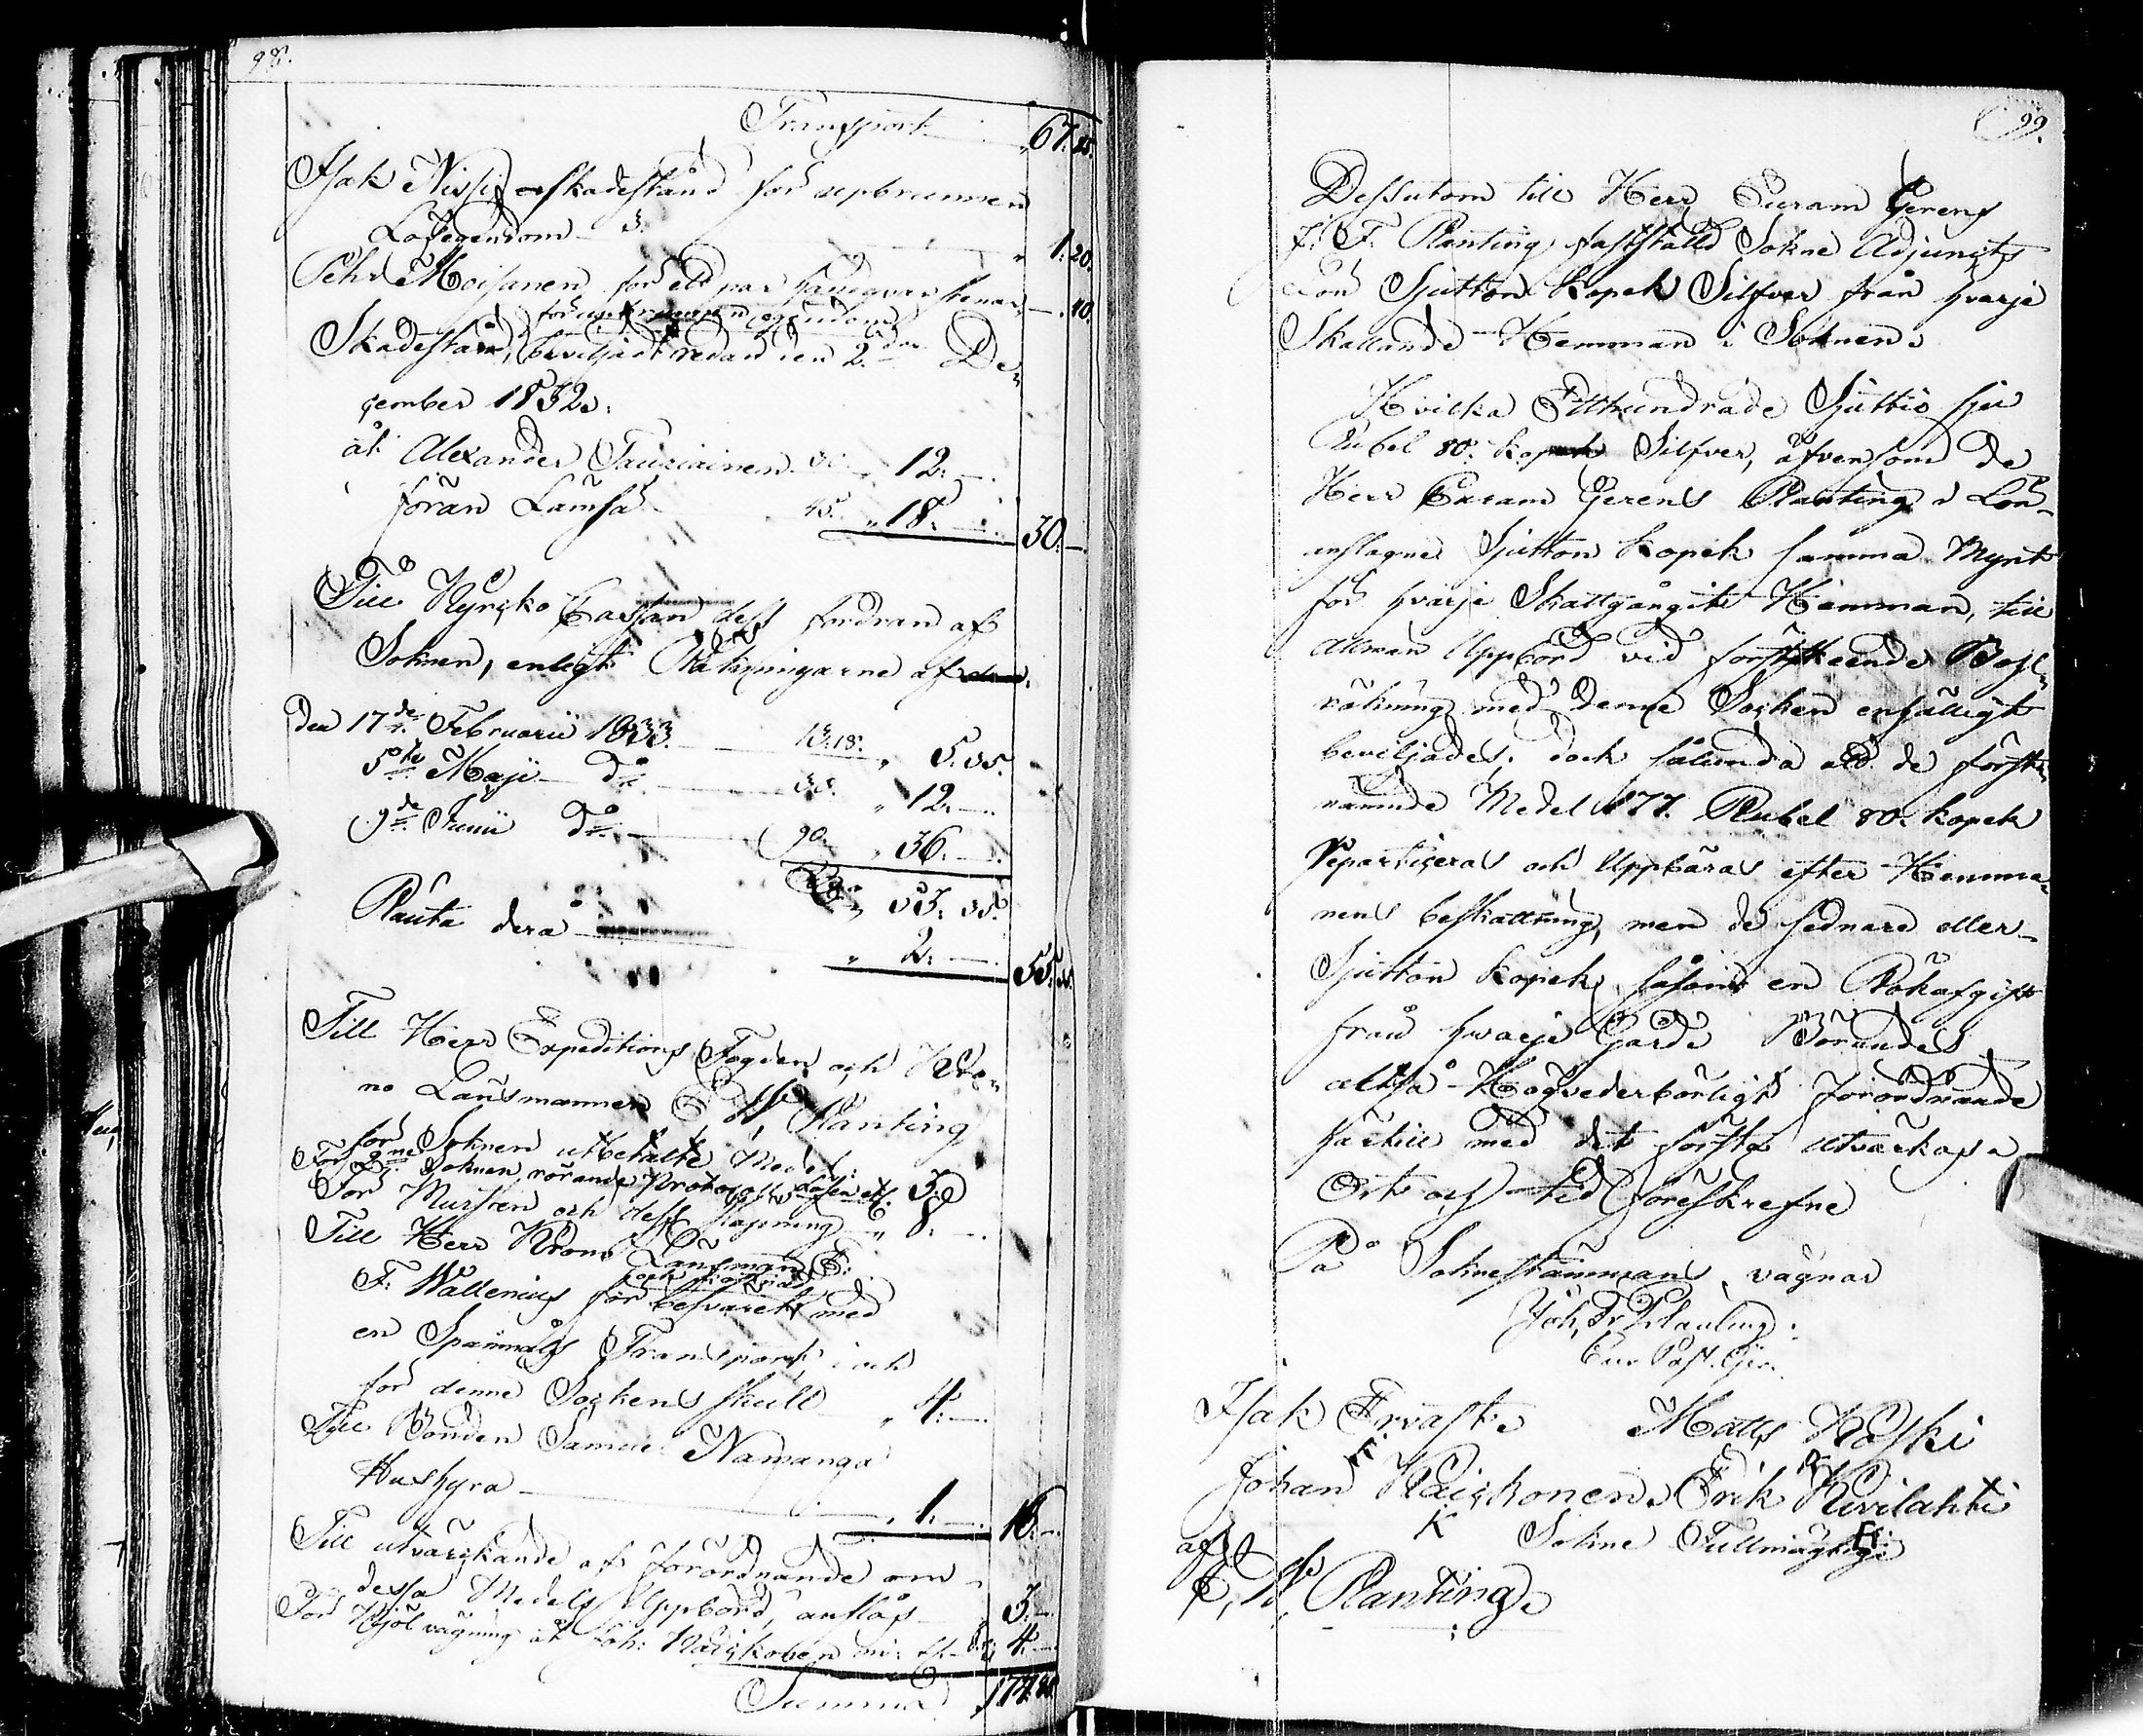 98.
Transport 67.85.
Isak Nissi skadestånd för uppbrunnen
Lösegendom 3. 1: 20.
Pehr Moisanen för ett par handqvarnstenar — . 40.
för uppbrunnen egendom
Skadestånd, beviljadt redan den 2:dra De-
cember 1832.
åt Alexander Tauriainen 30. " 12. —.
från Lämsä 45. " 18. —. 30. —.
Till Kyrcko Cassan dess fordran af
Soknen, enligt Räkningarne af
den 17de Februarii 1833. 13.18. " 5.35.
5te Maji do 30. " 12. —.
9de Junii do 90. " 36. —.
" 53. 35.
Ränta derå " 2. —. 55.35.
Till Herr Expeditions Fogden och Kro-
no Länsmannen C. W. Planting
för Soknen utbetalte Medel:
För Soknen rörande Protocolls Lösen etc. 3.
För Mursten och dess " 8. —.
Till Herr Krono Länsman E:
F: Wallenius för besväret med
en Spannmåls Transport, i och
för denne Sockens skull " 4. —.
Till Bonden Samuel Namanga
Hushyra " 1. —. 16. —.
Till utvärckande af förordnande om
dessa Medels Uppbörd, anslås 3. —.
För Kjöl vägning åt Joh: Räickönen 4. —.
Summa 177.80.
99.
Dessutom till Herr Curam Gerens
J. F. Planting fastställd Sokne Adjuncts
Lön Sjutton Kopek Silfver från hvarje
Skattande Hemman i Soknen.
Hvilka Etthundrade Sjuttio sju
Rubel 80. kopek Silfver, äfvensom de
Herr Curam Gerens Planting i Lön
anslagne Sjutton kopek samma Mynt
för hvarje Skattgångit Hemman, till
allmän Uppbörd vid
räkning med denne Socken enhälligt
beviljades; dock sålunda att de först-
nämnde Medel 177. Rubel 80. kopek
Reparticeras och Uppbäras efter Hemma-
nens beskattning, men de sednare eller
Sjutton kopek, såsom en Rökafgift
från hvarje Gård. Börandes
altså Högvederbörligt förordnande
härtill med det första utvärckas.
Ort och tid föreskrefne
På Soknestämmans vägnar
Joh. Fr. Planting.
Cur. Past. Ger.
Isak Ervasti Matts Koski
Johan Räickönen. Erik Kurilahti
K Sokne Fullmägtige
af
C. W. Planting.